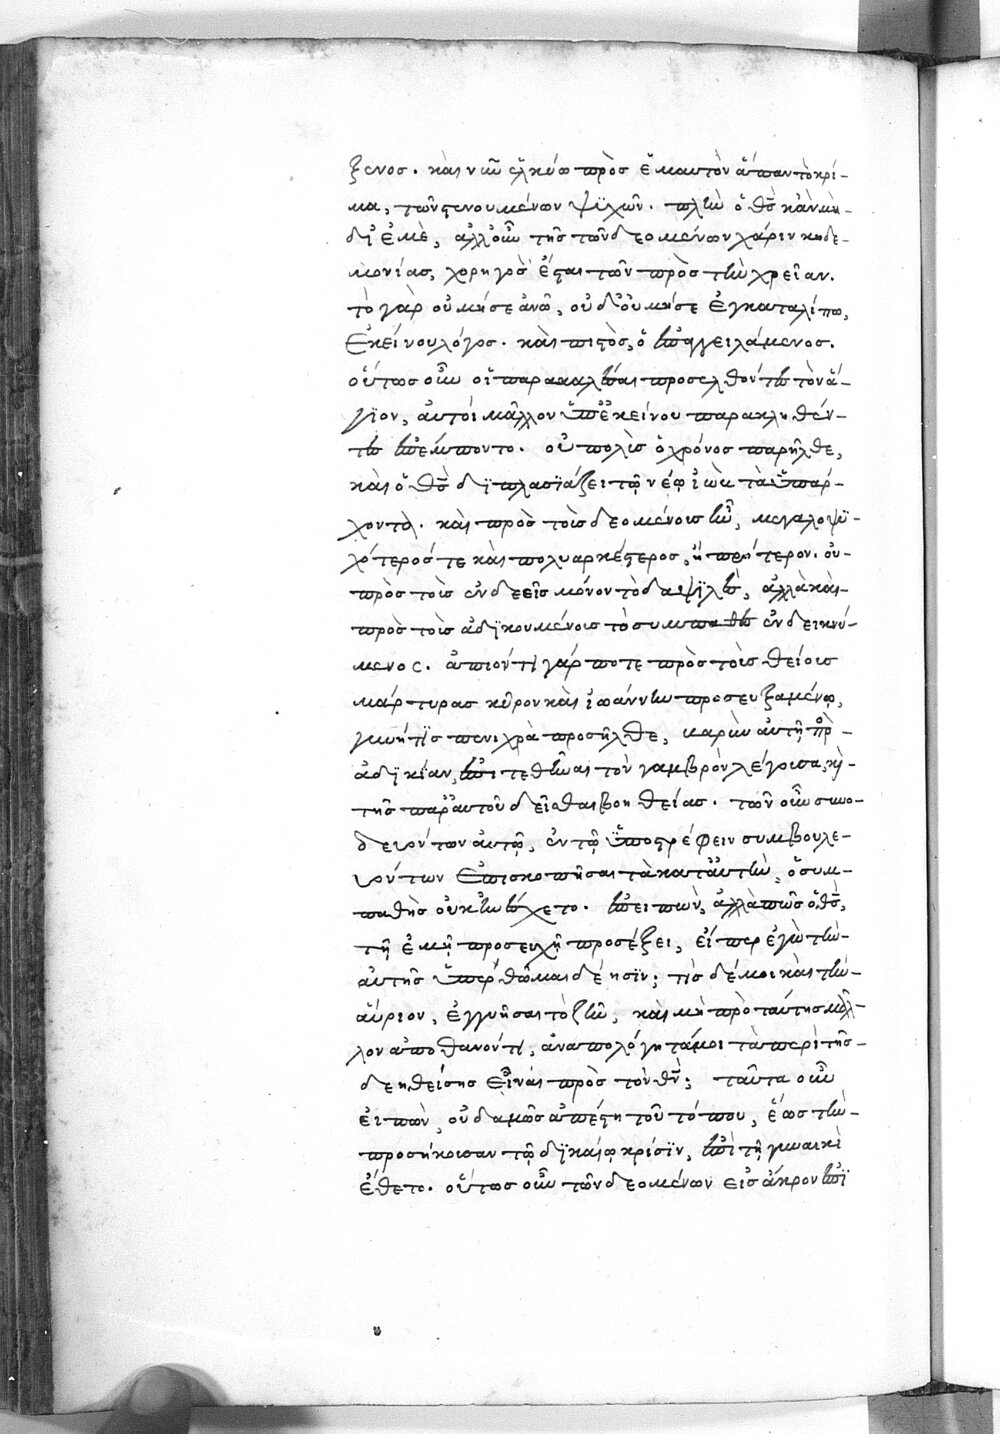 ξενος. καὶ νῦν ἑλκύω πρὸς ἐμαυτὸν ἅπαν τὸ κρί-
μα, τῶν πενομένων ψυχῶν. πλὴν ὁ θς κἂν μὴ
δι' ἐμὲ, ἀλλ' οὖν τῆς τῶν δεομένων χάριν κηδε-
μονίας, χορηγὸς ἔσται τῶν πρὸς τὴν χρείαν.
τὸ γὰρ οὐ μή σε ἀνῶ, οὐδ' οὐ μή σε ἐγκαταλίπω,
ἐκείνου λόγος. καὶ πιστὸς, ὁ ἐπαγγειλάμενος.
οὕτως οὖν οἱ παρακαλέσαι προσελθόντες τὸν ἅ-
γϊον, αὐτοὶ μᾶλλον ὑπ' ἐκείνου παρακληθέν-
τες ἐπέμποντο. οὐ πολὺς ὁ χρόνος παρῆλθε,
καὶ ὁ θς διπλασϊάζει τῷ νέῳ ἰὼβ τὰ ὑπάρ-
χοντα. καὶ πρὸς τοῖς δεομένοις ἦν, μεγαλοψϋ-
χότερός τε καὶ πολυαρκέστερος, ἢ πρότερον. οὐ
πρὸς τοῖς ἐνδεεῖς μόνον τὸ δαψϊλὲς, ἀλλὰ καὶ
πρὸς τοῖς ἀδϊκουμένοις τὸ συμπαθὲς ἐνδεικνύ-
μενος. ἀπιόντϊ γάρ ποτε πρὸς τοὺς θείους
μάρτυρας κῦρον καὶ ἰωάννην προσευξαμένῳ,
γυνή τϊς πενιχρὰ προσῆλθε, παρ' ὧν αὐτῇ πρ
ἀδϊκίαν, ἐπιτεθῆναι τὸν γαμβρὸν λέγουσα, καὶ
τῆς παρ' αὐτοῦ δεῖσθαι βοηθείας. τῶν οὖν συνο-
δευόντων αὐτῷ, ἐν τῷ ὑποστρέφειν συμβουλε-
υόντων ἐπισκοπῆσαι τὰ κατ' αὐτὴν, ὁ συμ-
παθὴς οὐκ ἠνέσχετο. ἐπειπὼν, ἀλλὰ πῶς ὁ θς,
τῇ ἐμῇ προσευχῇ προσέξει, εἴπερ ἐγὼ τὴν
αὐτῆς ὑπερθῶμαι δέησϊν; τίς δέ μοι καὶ τὴν
αὔριον, ἐγγυήσαι τὸ ζῆν, καὶ μὴ πρὸ ταύτης μᾶλ-
λον ἀποθανόντϊ, ἀναπολόγητά μοι τὰ περὶ τῆς
δεηθείσης εἶναι πρὸς τὸν θν; ταῦτα οὖν
εἰπὼν, οὐδαμῶς ἀπέστη τοῦ τόπου, ἕως τὴν
προσήκουσαν τῷ δϊκαίῳ κρίσϊν, ἐπὶ τῇ γυναικὶ
ἔθετο. οὕτως οὖν τῶν δεομένων εἰς ἄκρον ἐπϊ